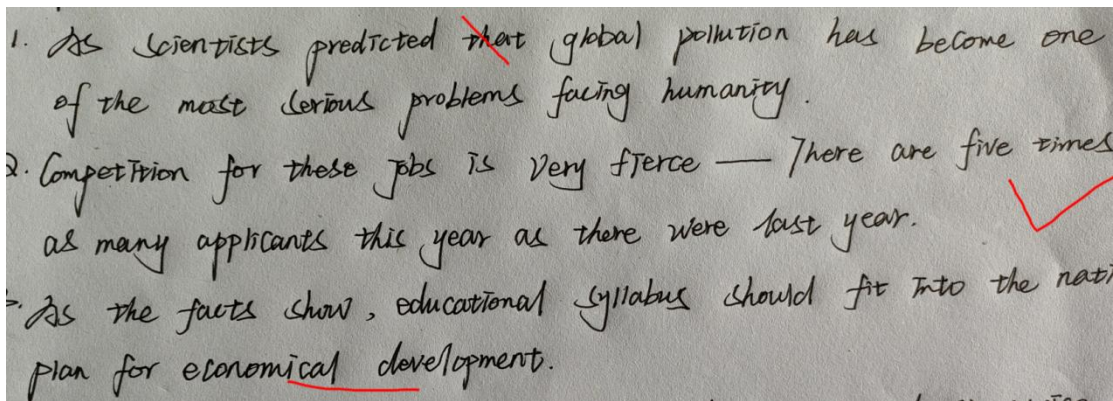 1. As scientists predicted that global pollution has become one
of the most serious problems facing humanity.
2. Competition for these jobs is very fierce — There are five times
as many applicants this year as there were last year.
As the facts show, educational syllabus should fit into the
plan for economical development.